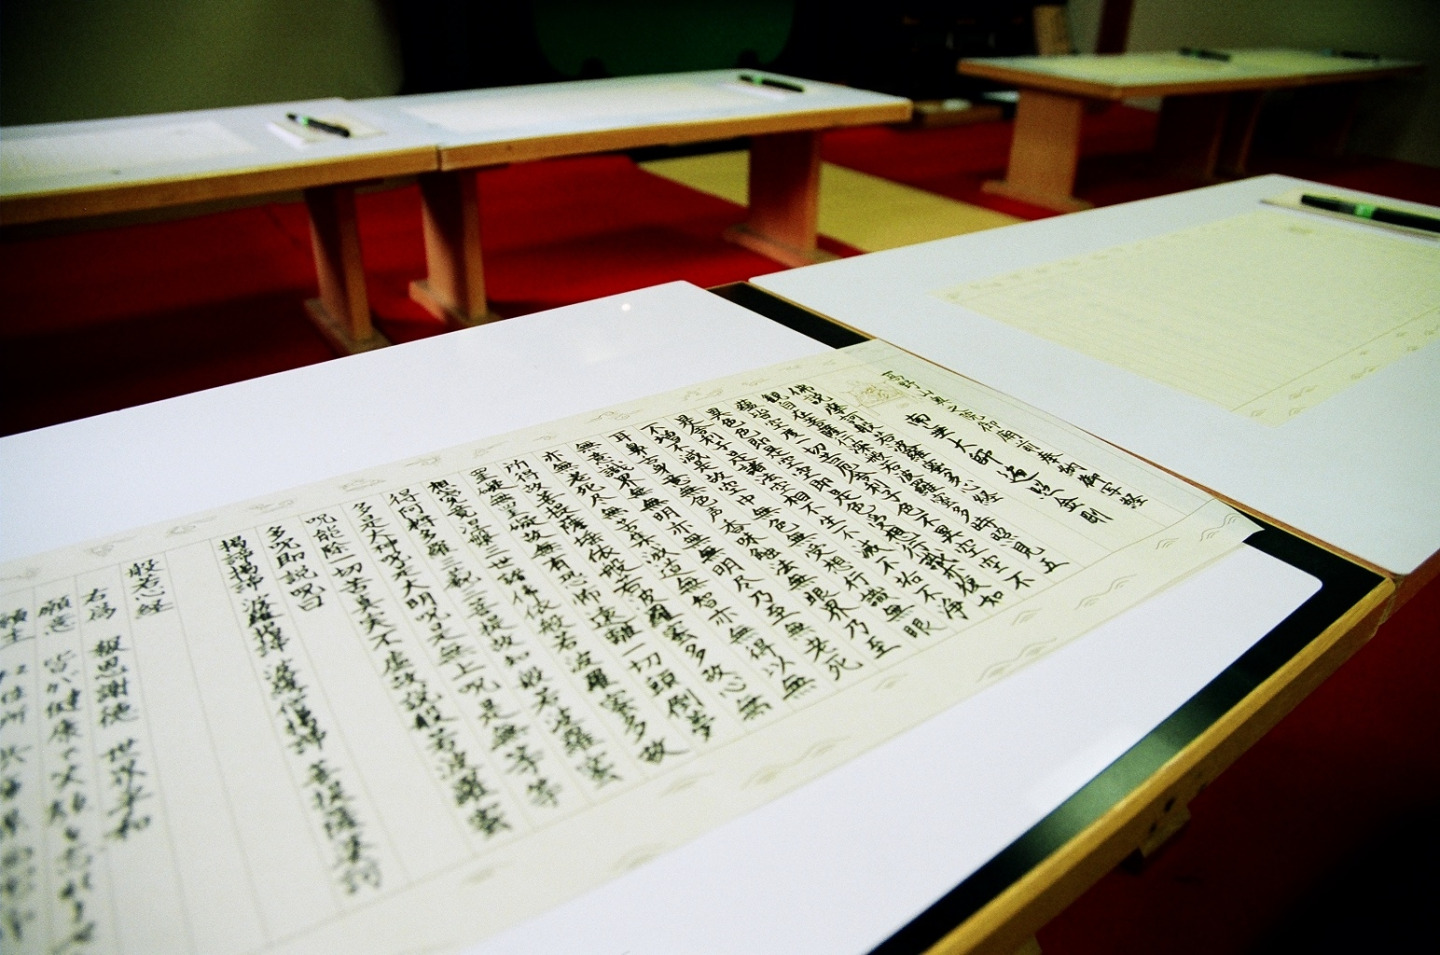 高野山奥之院御廟前奉納御写経
南無大師遍照金剛
佛説摩訶般若波羅蜜多心経
観自在菩薩行深般若波羅蜜多時照見五
蘊皆空度一切苦厄舎利子色不異空空不
異色色即是空空即是色受想行識亦復如
是舎利子是諸法空相不生不滅不垢不浄
不増不減是故空中無色無受想行識無眼
耳鼻舌身意無色声香味触法無眼界乃至
無意識界無無明亦無無明尽乃至無老死
亦無老死尽無苦集滅道無智亦無得以無
所得故菩提薩埵依般若波羅蜜多故心無
罣礙無罣礙故無有恐怖遠離一切顛倒夢
想究竟涅槃三世諸佛依般若波羅蜜多故
得阿耨多羅三藐三菩提故知般若波羅蜜
多是大神呪是大明呪是無上呪是無等等
呪能除一切苦真実不虚故説般若波羅蜜
多呪即説呪曰
掲諦掲諦 波羅掲諦 波羅僧掲諦 菩提薩婆訶
般若心経
右為 報恩謝徳 世界平和
願意 家内健康
願主